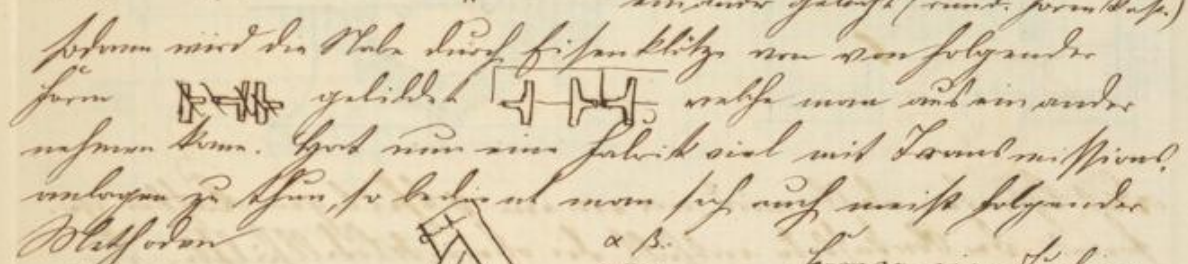 einander gelegt (rund.
sodann wird die Nabe durch Eisenklötze von von folgender
Form gebildet welche man auseinander
nehmen kann. Hat nun eine Fabrik viel mit Transmissions,
anlagen zu thun, so bedient man sich auch meist folgender
Methoden
α β.